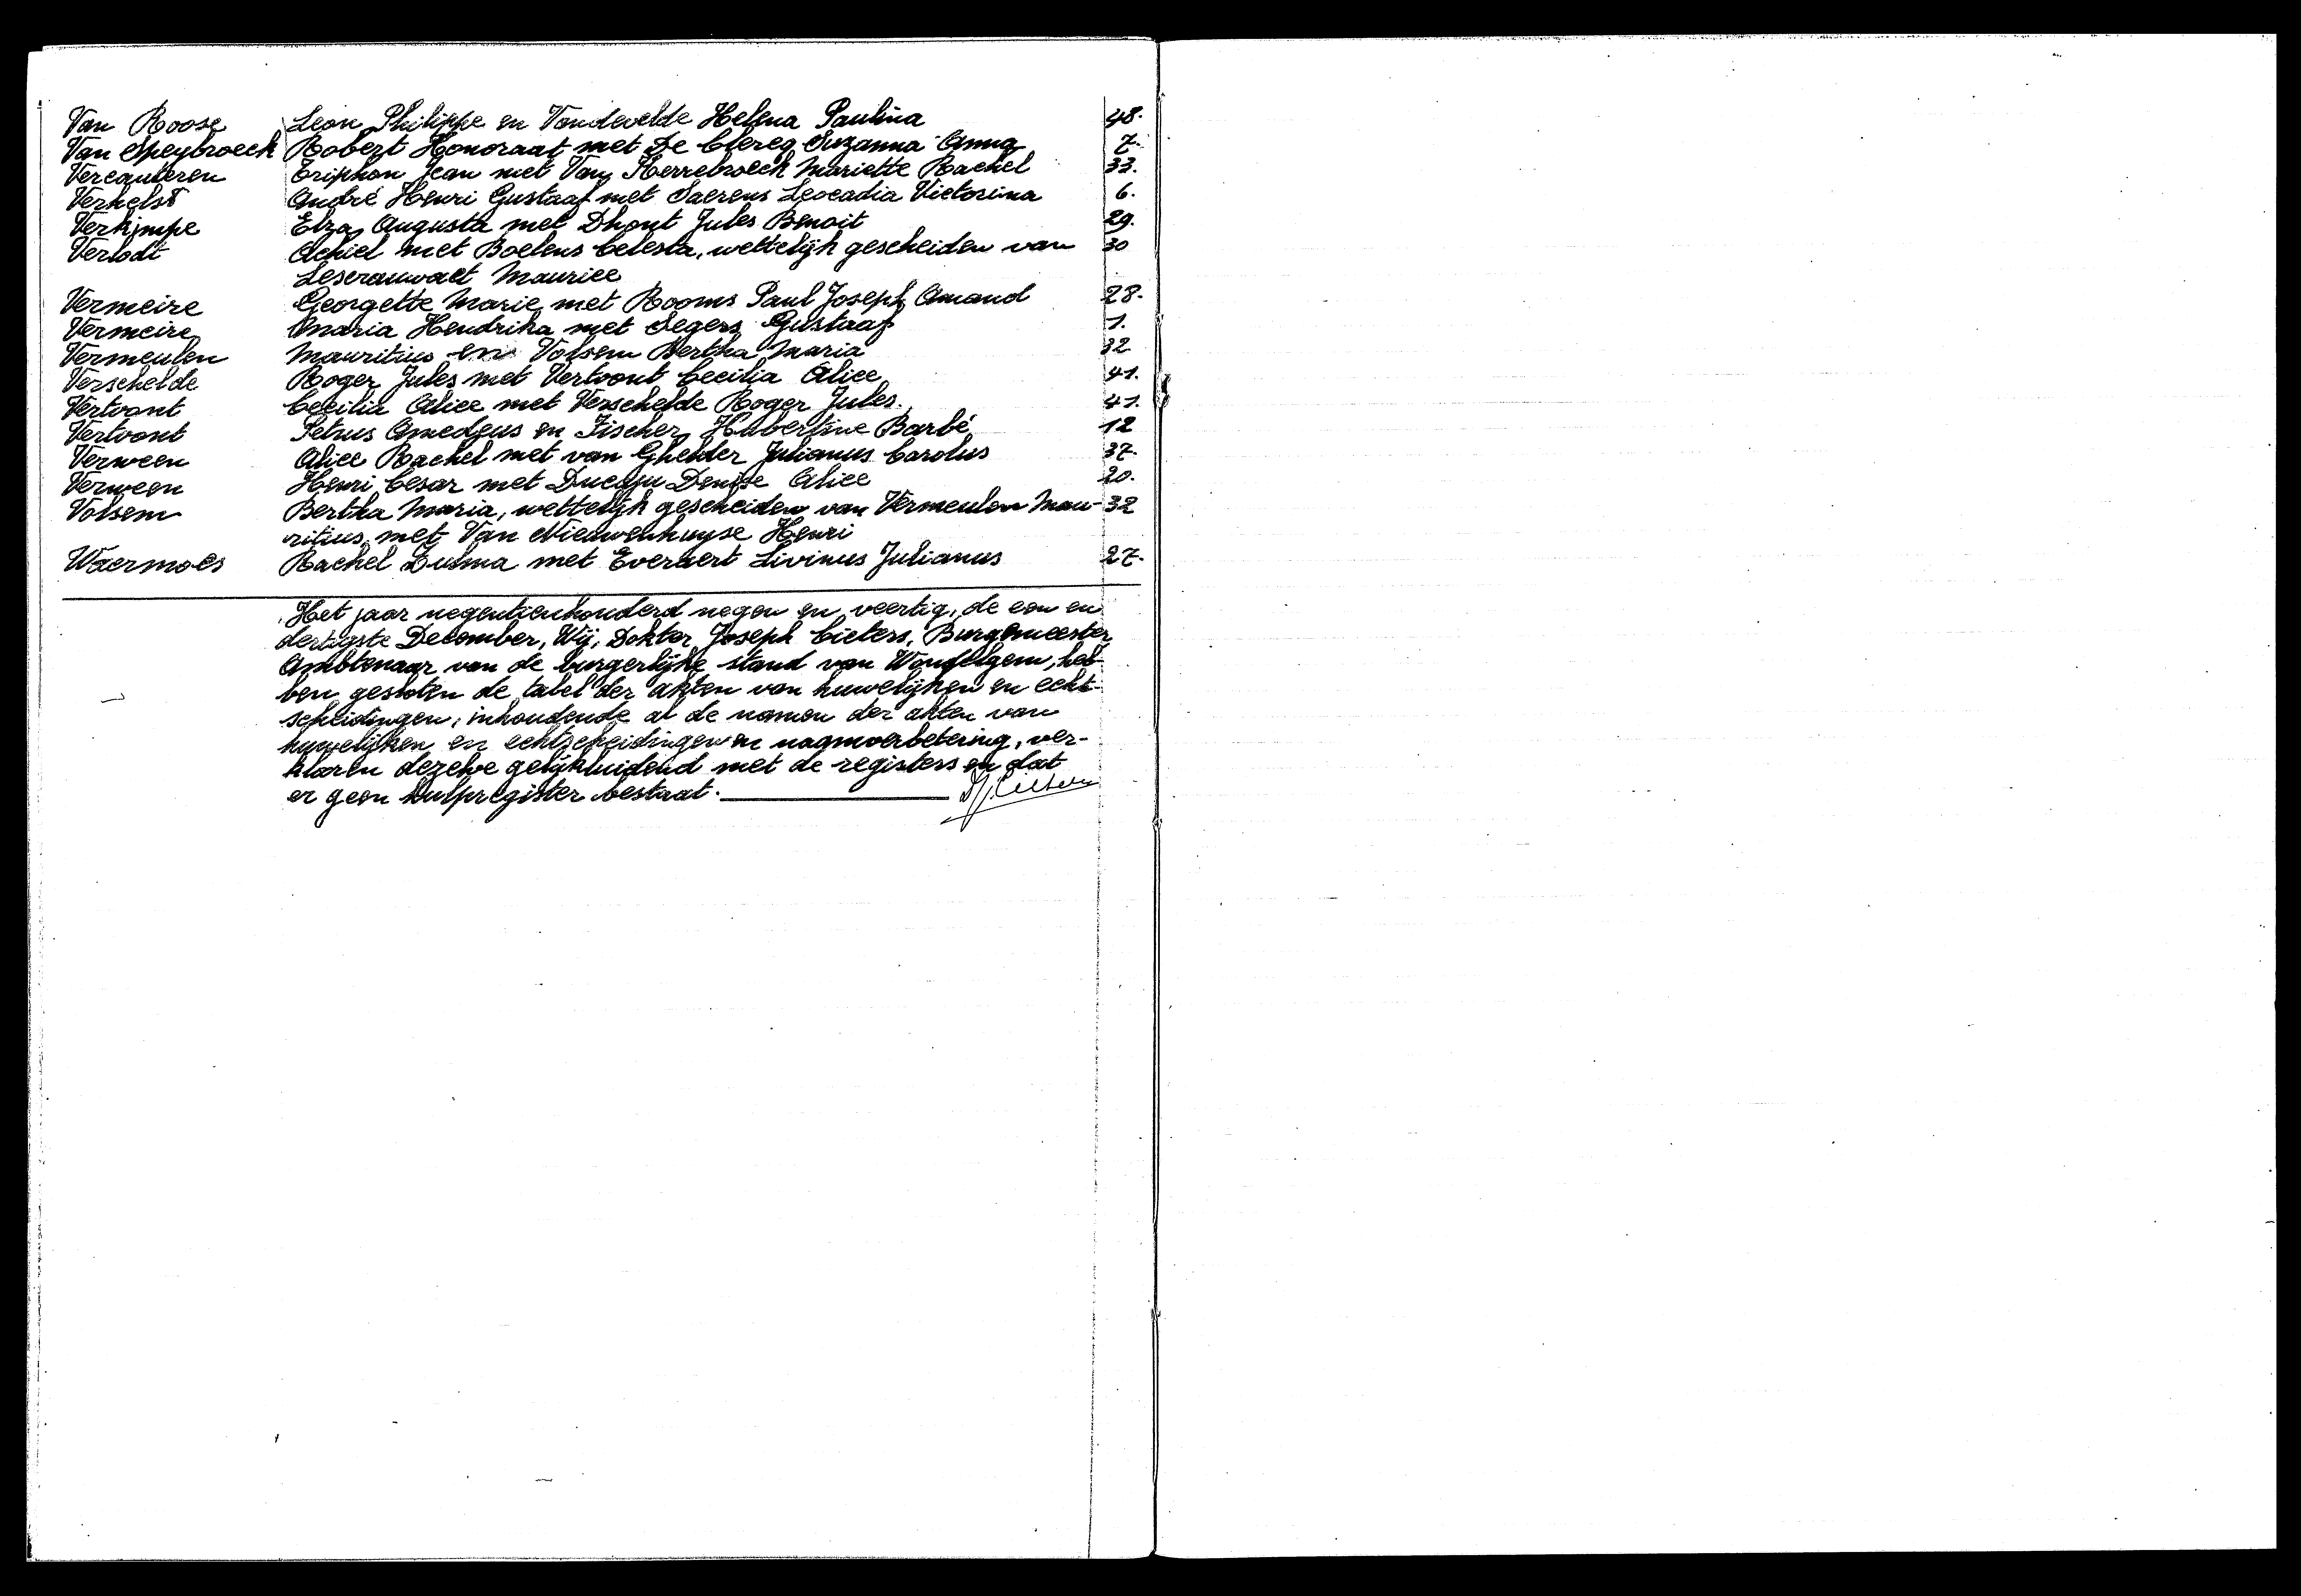 Van Roose Leon Philippe en Vandevelde Helena Paulina 48.
Van Speybroeck Robert Honoraat met De Clercq Suzanna Anna 7.
Vercauteren Triphon Jean met Van Kerrebroeck Mariette Rachel 33.
Verhelst André Henri Gustaaf met Saerens Leocadia Victorina 6.
Verkimpe Elza Augusta met Dhont Jules Benoit 29.
Verlodt Achiel met Boelens Celesta, wettelijk gescheiden van 30
Lescrauwaet Maurice
Vermeire Georgette Marie met Rooms Paul Joseph Amand 28.
Vermeire Maria Hendrika met Segers Gustaaf 1.
Vermeulen Mauritius en Volsem Bertha Maria 32
Verschelde Roger Jules met Vertvont Cecilia Alice 41.
Vertvont Cecilia Alice met Verschelde Roger Jules. 41.
Vertvont Petrus Amedeus en Fischer Hubertine Barbé 12
Verween Alice Rachel met van Ghelder Julianus Carolus 37.
Verween Henri Cesar met Ducaju Denise Alice 20.
Volsem Bertha Maria, wettelijk gescheiden van Vermeulen Mau- 32
ritius, met Van Nieuwenhuyse Henri
Waermoes Rachel Dulma met Everaert Livinus Julianus 27.
Het jaar negentienhonderd negen en veertig, de een en
dertigste December, Wij, Dokter Joseph Cieters, Burgemeester
Ambtenaar van de burgerlijke stand van Wondelgem, heb-
ben gesloten de tabel der akten van huwelijken en echt-
scheidingen, inhoudende al de namen der akten van
huwelijken en echtscheidingen en naamverbetering, ver-
klaren dezelve gelijkluidend met de registers en dat
er geen hulpregister bestaat.